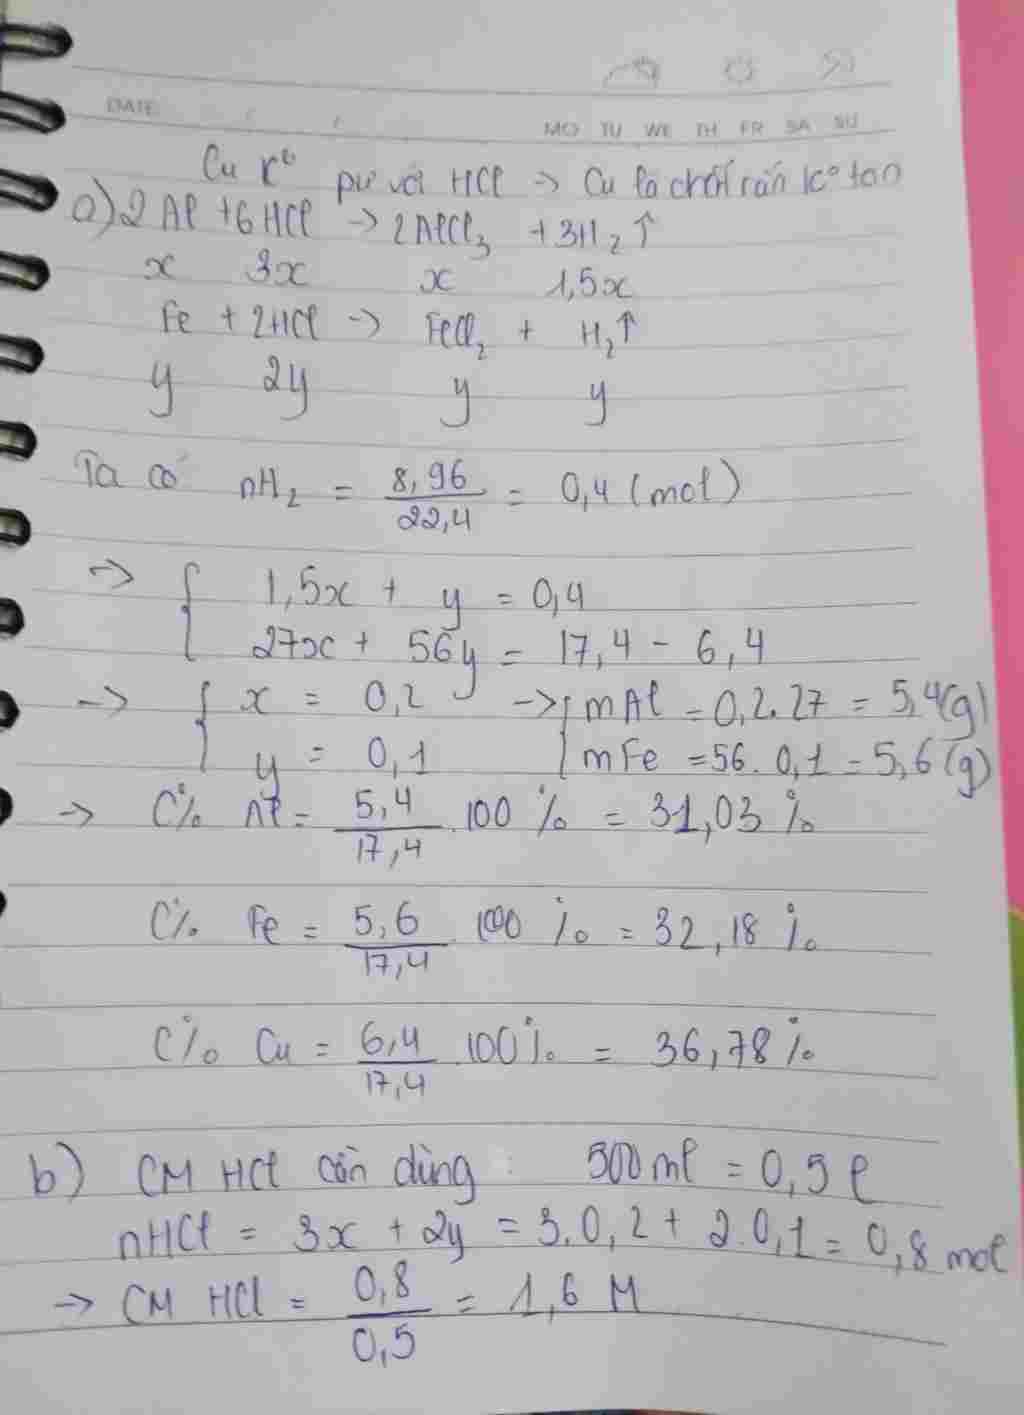 DATE / /
MO TU WE TH FR SA SU
Cu k⁰ pư với HCl -> Cu là chất rắn k⁰ tan
a) 2Al + 6HCl -> 2AlCl₃ + 3H₂↑
x 3x x 1,5x
Fe + 2HCl -> FeCl₂ + H₂↑
y 2y y y
Ta có nH₂ = 8,96/22,4 = 0,4 (mol)
-> { 1,5x + y = 0,4
27x + 56y = 17,4 - 6,4
-> { x = 0,2 -> { mAl = 0,2.27 = 5,4(g)
y = 0,1 mFe = 56.0,1 = 5,6(g)
-> C% Al = 5,4/17,4 .100% = 31,03%
C% Fe = 5,6/17,4 100% = 32,18%
C% Cu = 6,4/17,4 .100% = 36,78%
b) CM HCl cần dùng : 500ml = 0,5l
nHCl = 3x + 2y = 3.0,2 + 2.0,1 = 0,8 mol
-> CM HCl = 0,8/0,5 = 1,6 M